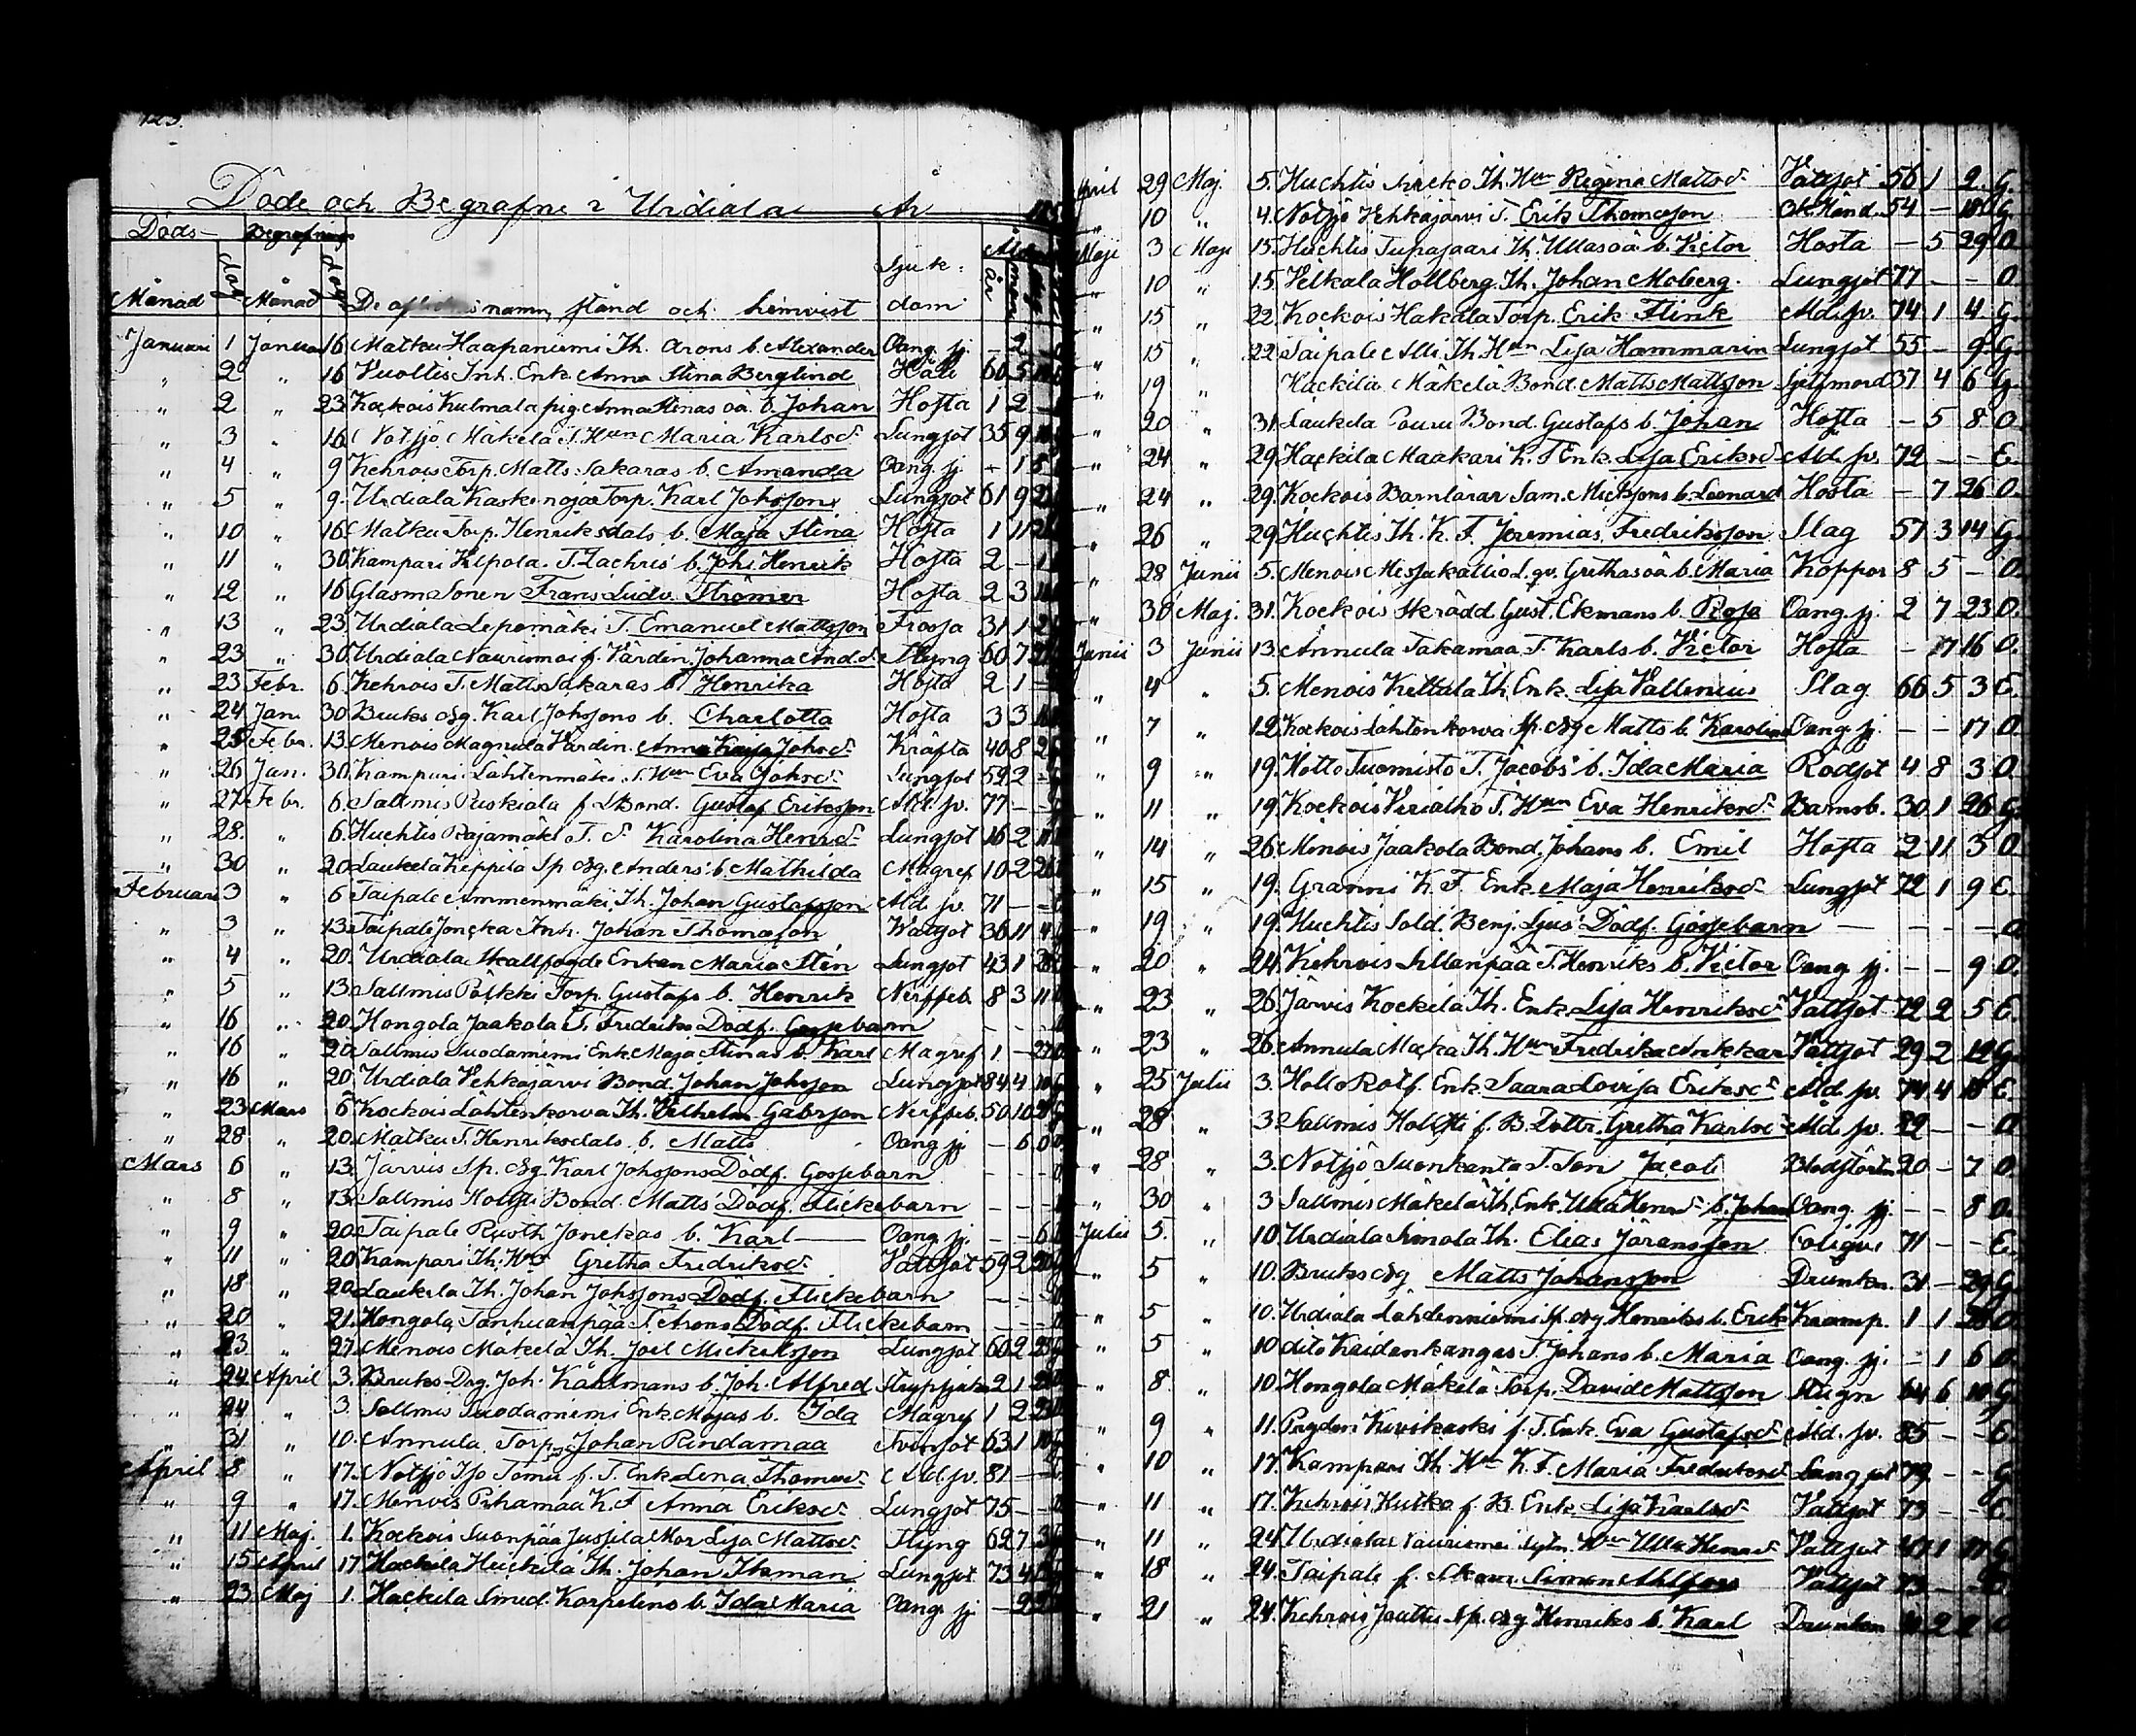 Döde och Begrafne i Urdiala År
Döds- Begrafnings Ålder
Månad dag Månad dag namn, stånd och hemvist Sjukdom år
Januari 1 Januari 16 Matku Haapaniemi Th. Arons b. Alexander Oang. sj. - 2
" 2 " 16 Enk. Anna Stina Berglind Håll 60 5
" 2 " 23 Kockois Kulmala pig. Anna Stinas oä. b. Johan Hosta 1 2 -
" 3 " 16 Notsjö Mäkelä T. Hun Maria Karlsd. Lungsot 35 9
" 4 " 9 Kehrois Torp. Matts Sakaras b. Amanda Oang. sj. - 1 5
" 5 " 9. Urdiala Kaskenoja Torp. Karl Johsson Lungsot 61 9
" 10 " 16 Matku Torp. Henriksdals b. Maja Stina Hosta 1 11
" 11 " 30. Kampari Kilpola T. Zachris b. Joh. Henrik Hosta 2 - 1
" 12 " 16 Glasm. Sonen Frans Ludv. Strömer Hosta 2 3
" 13 " 23. Urdiala Lepomäki T. Emanuel Mattsson Frossa 31 1
" 23 " 30. Urdiala Naurismaa f. Värdin. Johanna And.d. Styng 60 7
" 23 Febr. 6 Kehrois T. Matts Sakaras b. Henrika Hosta 2 1 -
" 24 Jan. 30 Bruks drg. Karl Johssons b. Charlotta Hosta 3 3
" 25 Febr. 13 Menois Magnula Värdin. Anna Kajsa Johsd. Kräfta 40 8
" 26 Jan. 30. Kampari Lahtenmäki T. Hun Eva Johsd. Lungsot 52 2
" 27 Febr. 6. Salmis Ruskiala f. Bond. Gustaf Eriksson Åld. sv. 77 - -
" 28. " 6. Huchtis Rajamäki T. d. Karolina Henrd. Lungsot 16 2
" 30 " 20. Laukela Keppila Sp. drg. Anders b. Mathilda Magref 10 2
Februari 3 " 6 Taipale Ammenmäki Th. Johan Gustafsson Åld. sv. 71 - -
" 3 " 13. Taipale Joncka Inh. Johan Thomasson Vattsot 36 11 4
" 4 " 20. Urdiala Skallfogde Enkan Maria Sten Lungsot 43 1
" 5 " 13. Salmis Pälkki Torp. Gustafs b. Henrik Nerffeb. 8 3 11
" 16 " 20. Hongola Jaakola T. Fredriks Dödf. Gossebarn - - -
" 16 " 20. Salmis Suodaniemi Enk. Maja Stinas b. Karl Magref 1 -
" 16 " 20. Urdiala Vehkajärvi Bond. Johan Johsson Lungsot 84 4
" 23 Mars 6 Kockois Lähtenkorva Th. Vilhelm Gabrsson Nerffeb. 50 10
" 28 " 20. Matku T. Henriksdals b. Matts Oang. sj. - 6
Mars 6 " 13. Järvis Sp. drg. Karl Johssons Dödf. Gossebarn - - -
" 8 " 13. Salmis Bond. Matts Dödf. Flickebarn - - -
" 9 " 20. Taipale Rusth. Jonckas b. Karl Oang. sj. - - 6
" 11 " 20. Kampari Th. Hun Gretha Fredriksd. Vattsot 59 2
" 18 " 20. Laukela Th. Johan Johssons Dödf. Flickebarn - - -
" 20 " 21. Hongola Tanhuanpää T. Arons Dödf. Flickebarn - - -
" 23 " 27. Menois Mäkelä Th. Joel Mickelsson Lungsot 60 2
" 24 April 3. Bruks Drg. Joh. Kählmans b. Joh. Alfred Strypsjukan 2 1
" 24 " 3. Salmis Suodaniemi Enk. Majas b. Ida Magref 1 2
" 31 " 10. Annula Torp. Johan Rindamaa Tvinsot 63 1
April 8 " 17. Notsjö Iso Tomu f. T. Enk. Lena Thomasd. Åld. sv. 81 - -
" 9 " 17. Menois Pihamaa K. F. Anna Eriksd. Lungsot 75 - -
" 11 Maj. 1. Kockois Suonpää Jussila Mor Lisa Mattsd. Styng 62 7
" 15 April 17 Hackila Huckila Th. Johan Itsman Lungsot 73 4
" 23 Maj 1. Hackila Smed. Korpelins b. Ida Maria Oang. sj. - 2
April 29 Maj. 5. Huchtis Th. Hun Regina Mattsd. Vattsot 56 1 2. G.
" 10 " 4. Notsjö Vehkajärvi T. Erik Thomasson Ok. Händ. 54 - 18 G.
Maji 3 Maji 15. Huchtis Tupasaari Th. Ullas oä b. Victor Hosta - 5 29 O
" 10 " 15. Velkala Hollberg Th. Johan Moberg. Lungsot 77 - - O
" 15 " 22. Kockois Hakala Torp. Erik Flink Åld. sv. 74 1 4 G.
" 15 " 22. Taipale Alli Th. Hun Lisa Hammarin Lungsot 55 - 9. G.
" 19 " Hackila Mäkelä Bond. Matts Mattsson Sjelfmord 37 4 6 G.
" 20 " 31. Laukela Bond. Gustafs b. Johan Hosta - 5 8 O.
" 24 " 29. Hackila Maakari K. F. Enk. Lisa Eriksd. Åld. sv. 72 - - E.
" 24 " 29. Kockois Barnlärar. Sam. Mickssons b. Leonard Hosta - 7 26 O.
" 26 " 29. Huchtis Th. K. F. Jeremias Fredriksson Slag 57 3 14 G.
" 28 Junii 5. Menois Messukallio L. qv. Grethas oä b. Maria Koppor 8 5 - O.
" 30 Maj. 31. Kockois Skrädd. Gust. Ekmans b. Rosa Oang. sj. 2 7 23 O.
Junii 3 Junii 13. Annula Takamaa T. Karls b. Victor Hosta - 7 16 O.
" 4 " 5. Menois Kettala Th. Enk. Lisa Vallenius Slag 66 5 3 E.
" 7 " 12. Kockois Lähtenkorva Sp. drg Matts b. Karolina Oang. sj. - - 17 O.
" 9 " 19. Hotto Tuomisto T. Jacobs b. Ida Maria Rödsot 4 8 3 O.
" 11 " 19. Kockois Virialho T. Hun Eva Henriksd. Barnsb. 30 1 26 G.
" 14 " 26. Menois Jaakola Bond. Johans b. Emil Hosta 2 11 5 O
" 15 " 19. Granni K. F. Enk. Maja Henriksd. Lungsot 72 1 9 E.
" 19 " 19. Huchtis Sold. Benj. Ljus Dödf. Gossebarn - - - - O
" 20 " 24. Kehrois Sillanpää T. Henriks b. Victor Oang. sj. - - 9 O.
" 23 " 26. Järvis Kockila Th. Enk. Lisa Henriksd. Vattsot 72 2 5 E.
" 23 " 26. Annula Macka Th. Hun Fredrika Vattsot 29 2 12 G.
" 25 Julii 3. Hollo Rotf. Enk. Saara Lovisa Eriksd. Åld. sv. 74 4 18 E
" 28 " 3. Salmis f. B. Dottr. Gretha Karlsd. Åld. sv. 82 - - O
" 28 " 3. Notsjö Suonkanta T. Son Jacob Blodstörtn. 20 - 7 O.
" 30 " 3 Salmis Mäkelä Th. Enk. Ulla Henrd. b. Johan Oang. sj. - - 8 O.
Julii 5. " 10. Urdiala Simola Th. Elias Jöransson 71 - - E.
" 5 " 10. Bruks drg Matts Johansson Drunkn. 31 - 29 G.
" 5 " 10. Urdiala Lähdenniemi Sp. drg Henriks b. Erik Kramp. 1 1 28 O.
" 5 " 10 dito Kaidankangas T. Johans b. Maria Oang. sj. - 1 6 O.
" 8. " 10. Hongola Mäkelä Torp. David Mattsson Stygn 64 6 10 G.
" 9 " 11. Kuvikaski f. T. Enk. Eva Gustafsd. Åld. sv. 85 - - E.
" 10 " 17. Kampari Th. Hun K. F. Maria Fredriksd. Lungsot 79 - - G
" 11 " 17. Kehrois Hutka f. B. Enk. Lisa Karlsd. Vattsot 73 - - E.
" 11 " 24. Urdiala Naurismaa Hun Ulla Henrd. Vattsot 1 17 G
" 18 " 24. Taipale f. Simon Ahlfors Vattsot 73 - -
" 21 " 24. Kehrois Jouttu Sp. drg Henriks b. Karl Drunkn 2